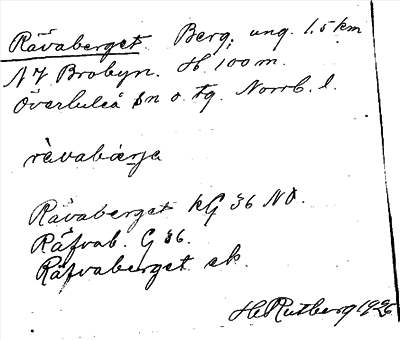 Rävaberget. Berg, ung. 1.5 km
NV Brobyn. H 100 m.
Överluleå sn o. tg. Norrb. l.
rävabærja
Rävaberget kG 36 NO.
Räfvab. G 36.
Räfvaberget ek.
H. Rutberg 1926